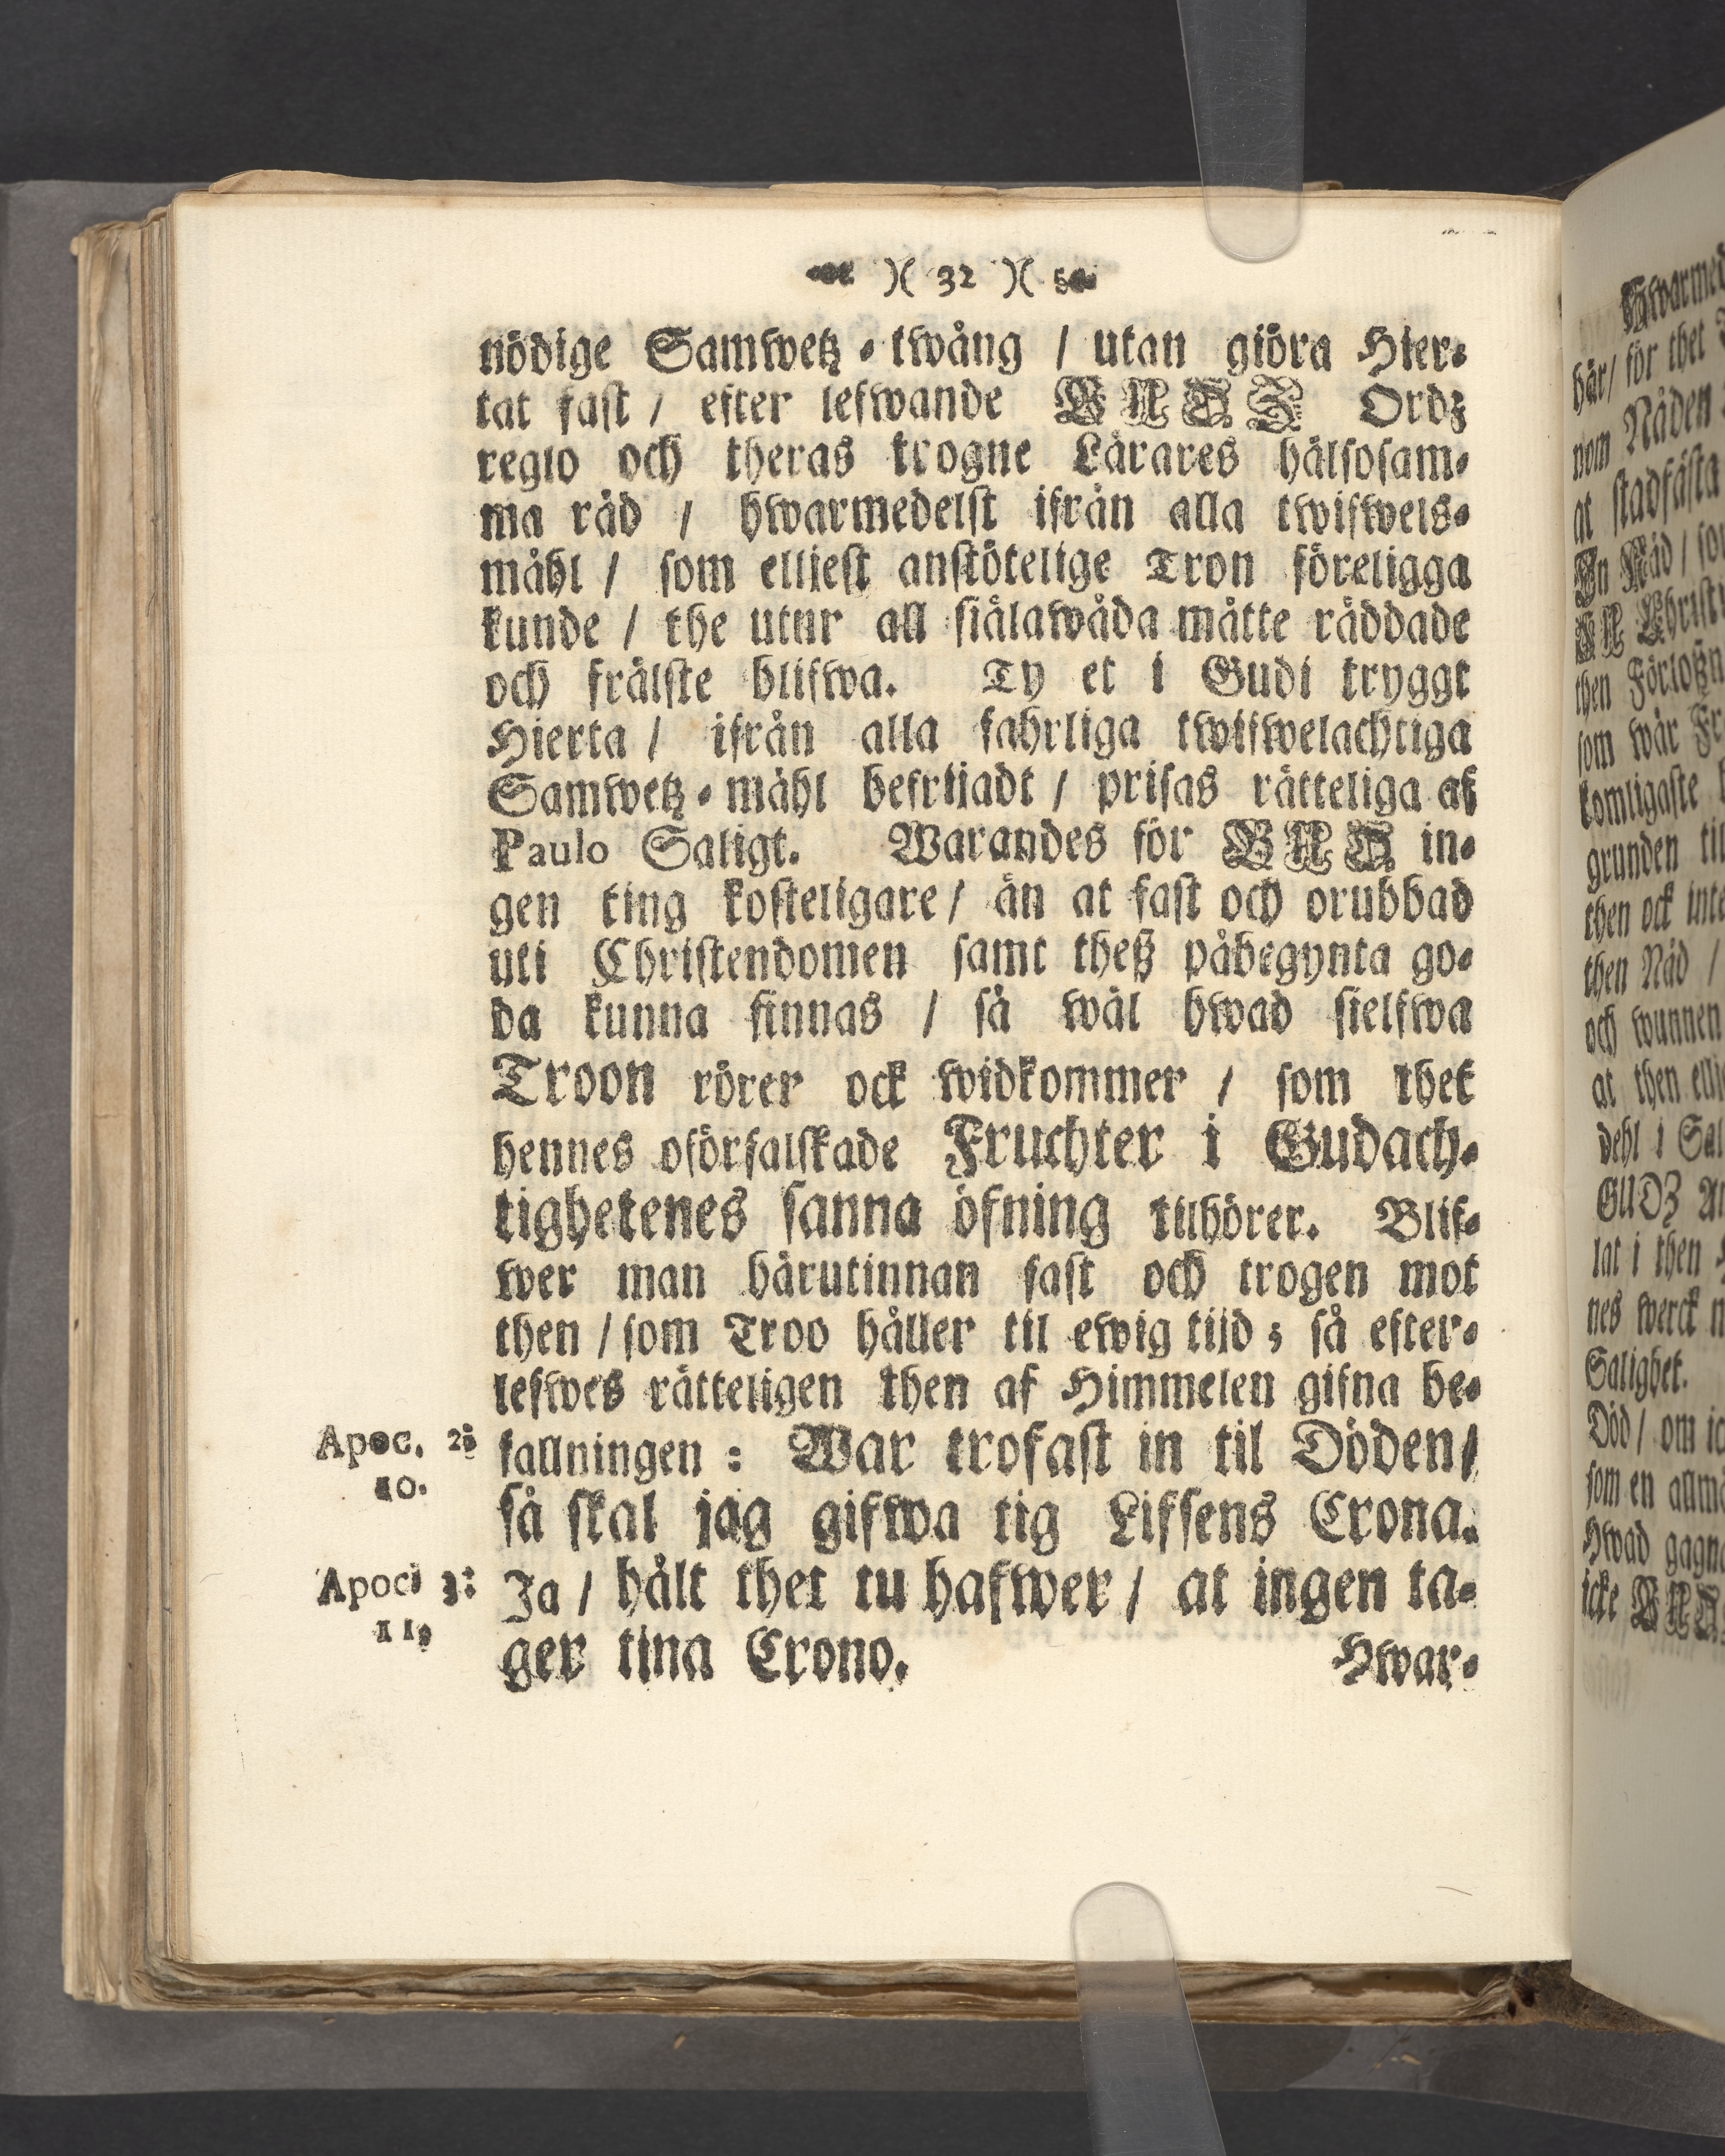 )( 32 )(
nödige Samwetz-twång / utan giöra Hier-
tat fast / efter lefwande GUDZ Ordz
reglo och theras trogne Lärares hälsosam-
ma råd / hwarmedelst ifrån alla twifwels-
måhl / som elljest anstötelige Tron föreligga
kunde / the utur all siälawåda måtte räddade
och frälste blifwa. Ty et i Gudi tryggt
Hierta / ifrån alla fahrliga twifwelachtiga
Samwetz-måhl befrijadt / prisas rätteliga af
Paulo Saligt. Warandes för GUD in-
gen ting kosteligare / än at fast och orubbad
uti Christendomen samt theß påbegynta go-
da kunna finnas / så wäl hwad sielfwa
Troon rörer ock widkommer / som thet
hennes oförfalskade Fruchter i Gudach-
tighetenes sanna öfning tilhörer. Blif-
wer man härutinnan fast och trogen mot
then / som Troo håller til ewig tijd ; så efter-
lefwes rätteligen then af Himmelen gifna be-
Apoc. 2: fallningen : War trofast in til Döden /
10.
så skal jag gifwa tig Lifsens Crona.
Apoc. 3: Ja / hålt thet tu hafwer / at ingen ta-
11.
ger tina Crono. Hwar-
Hwarmed
här / för thet
nom Nåden
at stadfästa
En Nåd / som
Christ
then Förloßn
som wår Fr
komligaste
grunden til
then ock inte
then Nåd /
och wunnen
at then ellj
dehl i Sal
GUDZ
lat i then
nes werck
Salighet.
Död / om
som en allm
Hwad gagn
icke GUD